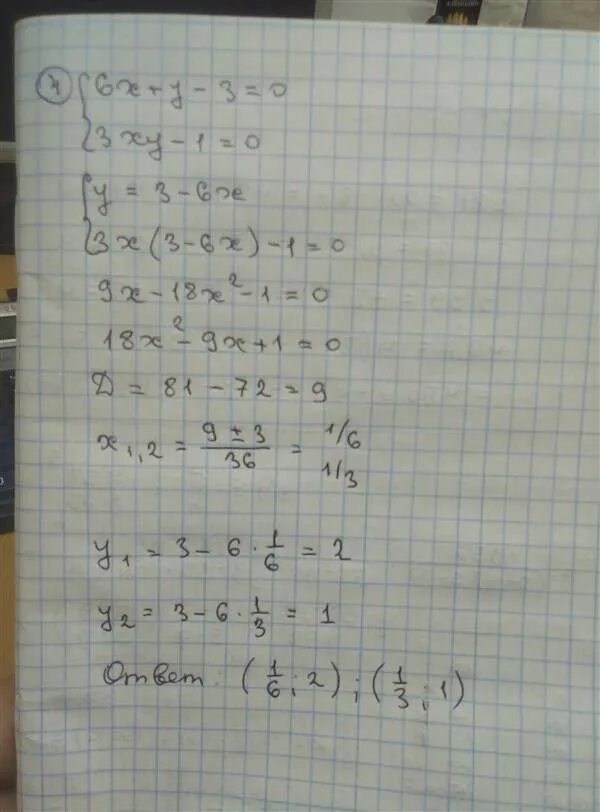 4) { 6x + y - 3 = 0
3xy - 1 = 0
{ y = 3 - 6x
3x(3 - 6x) - 1 = 0
9x - 18x² - 1 = 0
18x² - 9x + 1 = 0
D = 81 - 72 = 9
x₁,₂ = (9 ± 3)/36 = 1/6
1/3
y₁ = 3 - 6 · 1/6 = 2
y₂ = 3 - 6 · 1/3 = 1
Ответ: (1/6 ; 2) ; (1/3 ; 1)